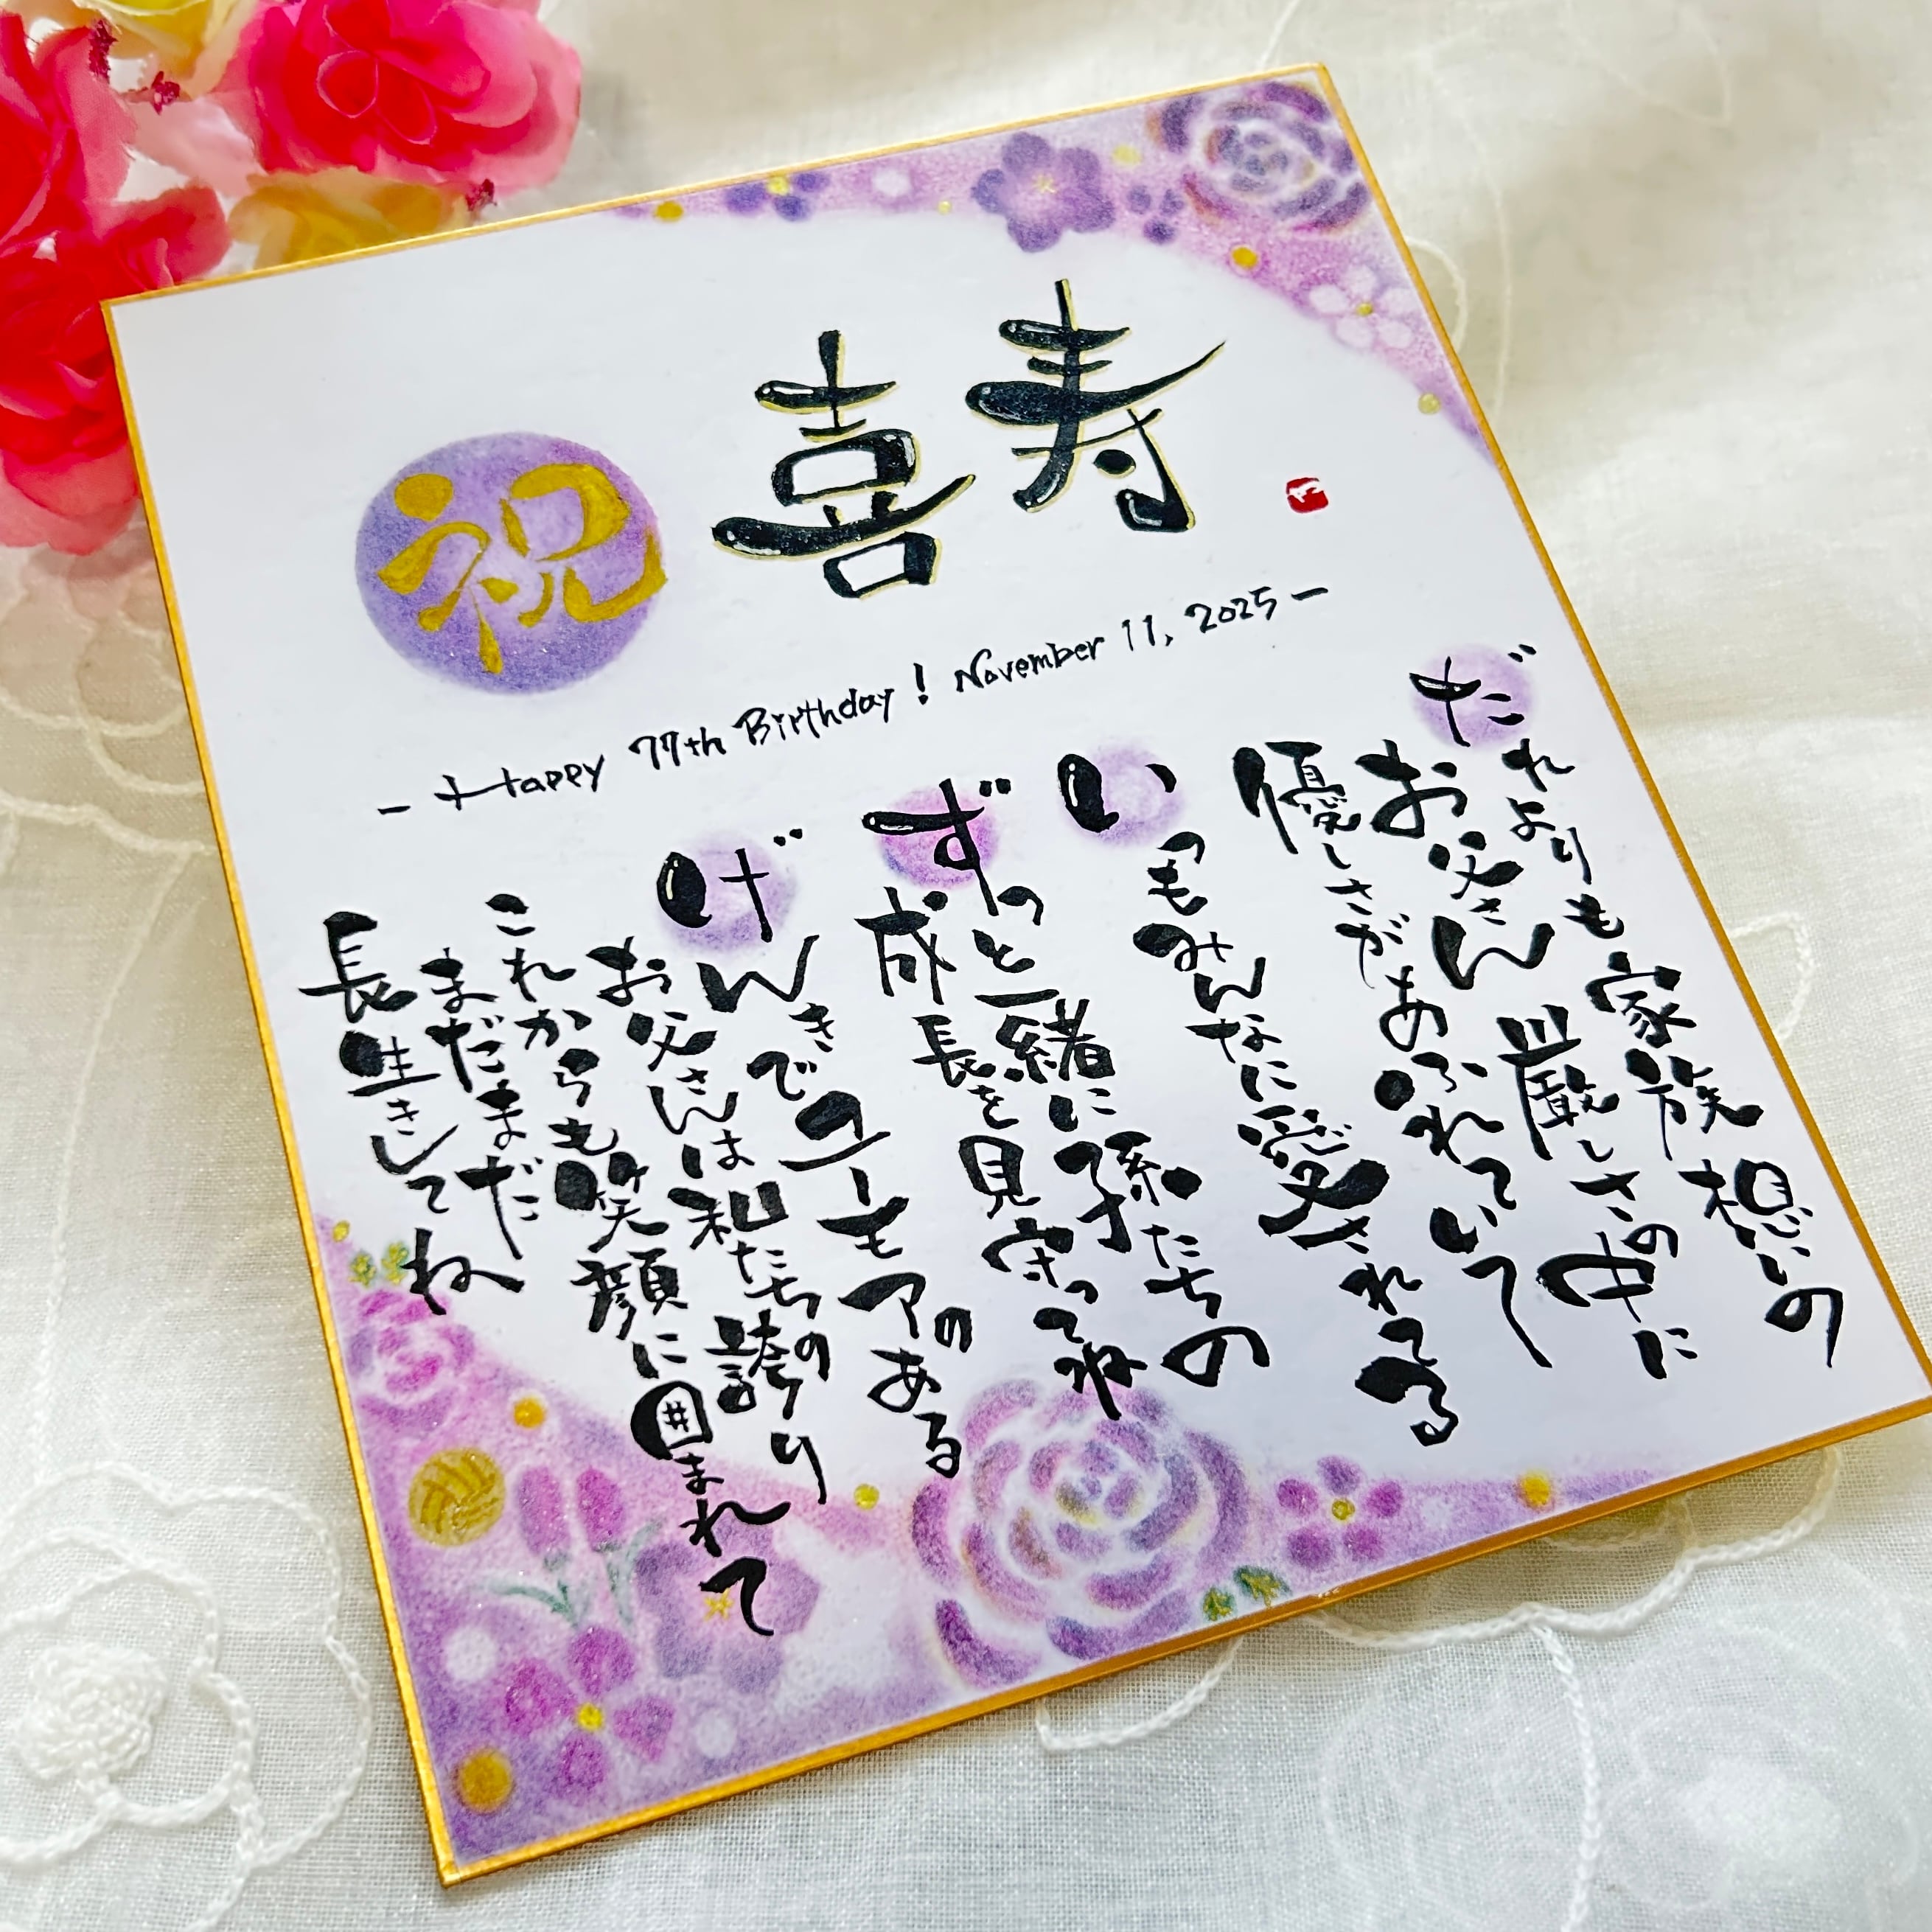 祝
喜寿
- Happy 77th Birthday! November 11, 2025 -
だれよりも家族想いの
お父さん 厳しさの中に
優しさがあふれていて
いつもみんなに愛されてる
ずっと一緒に孫たちの
成長を見守ってね
げんきでユーモアのある
お父さんは私たちの誇り
これからも笑顔に囲まれて
まだまだ
長生きしてね